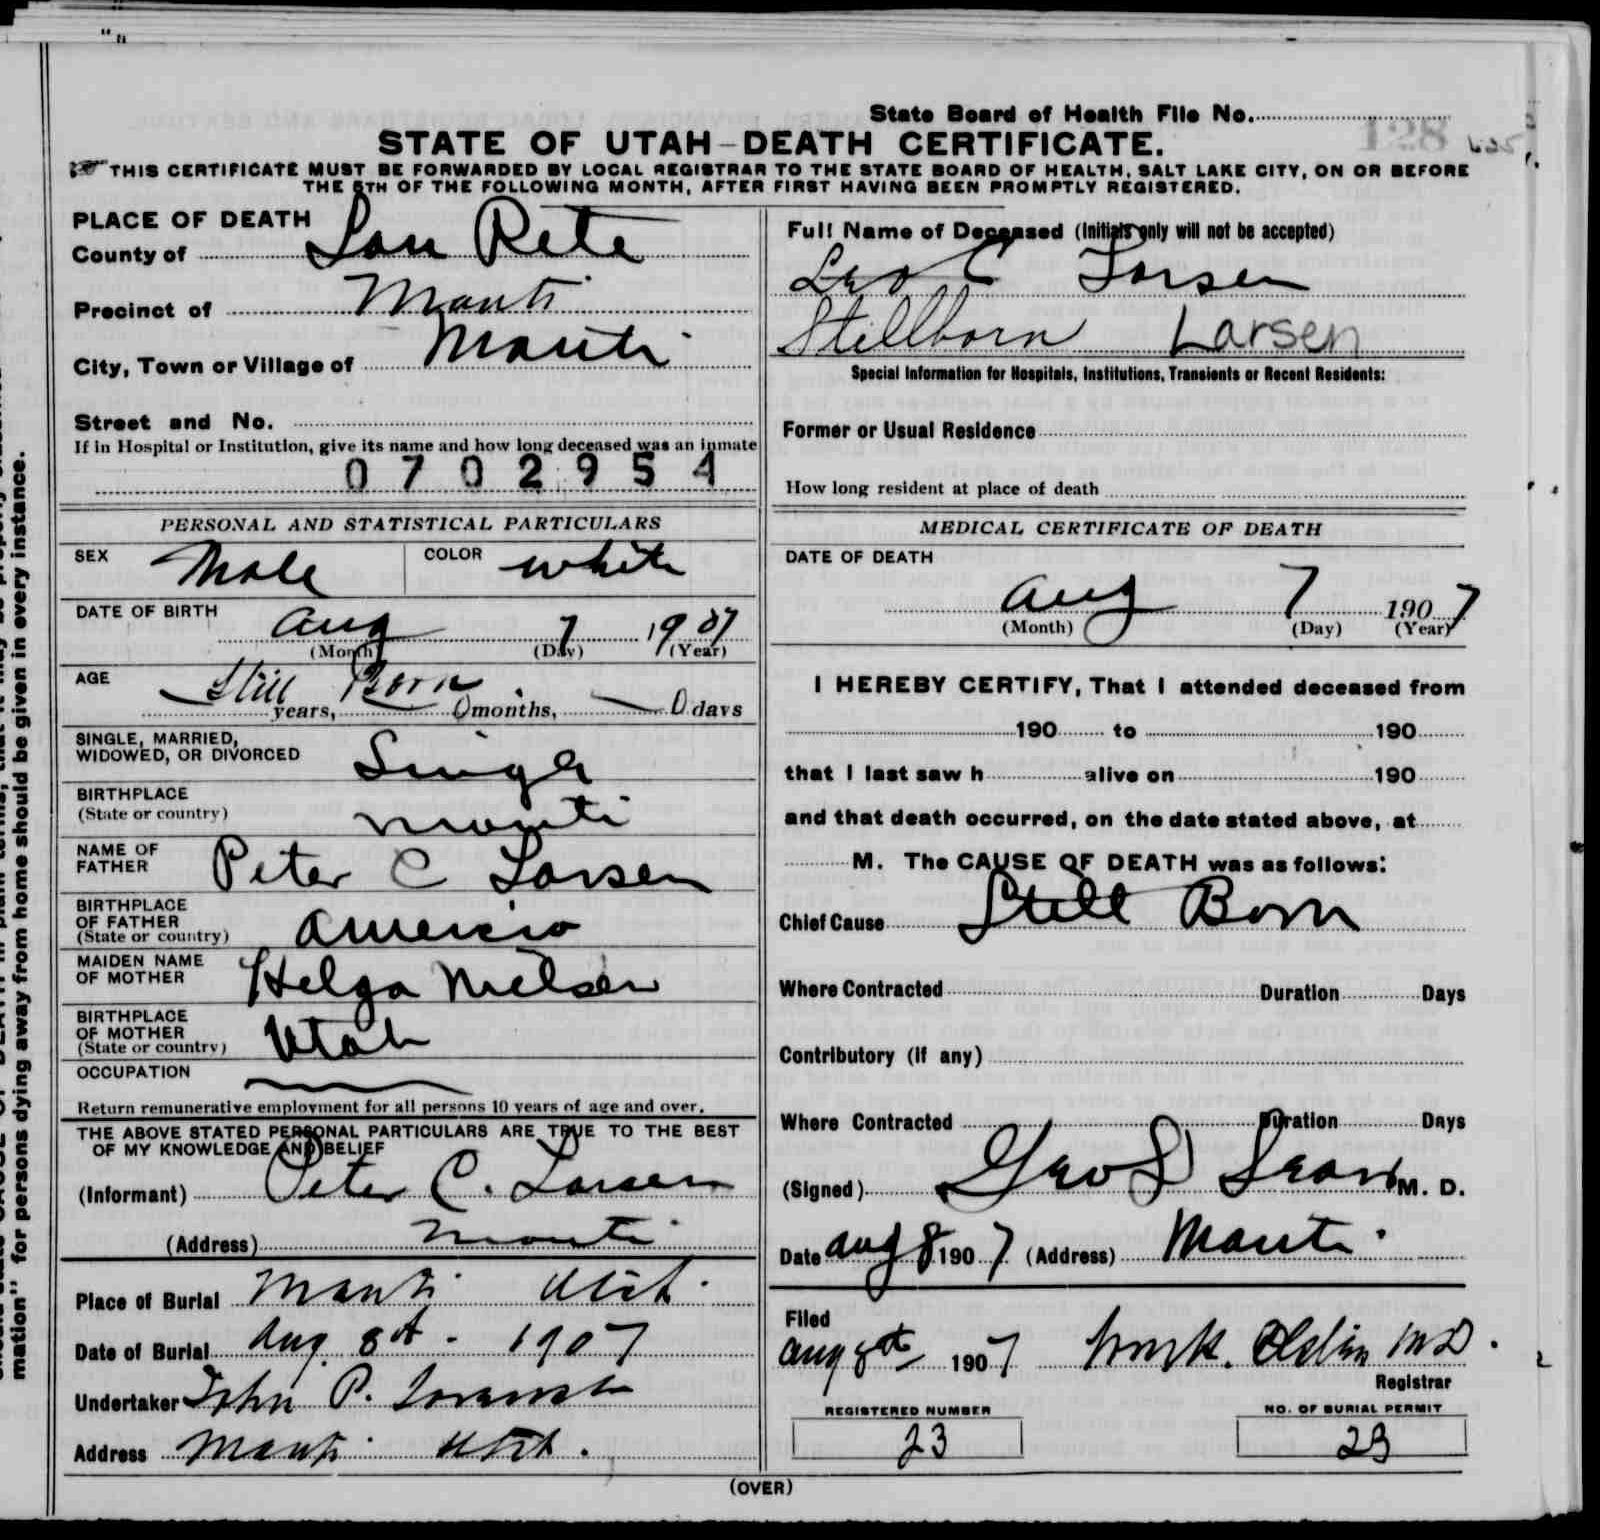 State Board of Health File No. 128
STATE OF UTAH—DEATH CERTIFICATE.
THIS CERTIFICATE MUST BE FORWARDED BY LOCAL REGISTRAR TO THE STATE BOARD OF HEALTH, SALT LAKE CITY, ON OR BEFORE
THE 5TH OF THE FOLLOWING MONTH, AFTER FIRST HAVING BEEN PROMPTLY REGISTERED.
PLACE OF DEATH
County of San Pete
Precinct of Manti
City, Town or Village of Manti
Street and No.
If in Hospital or Institution, give its name and how long deceased was an inmate
0702954
PERSONAL AND STATISTICAL PARTICULARS
SEX Male COLOR white
DATE OF BIRTH Aug 7 1907
(Month) (Day) (Year)
AGE Still Born
years, 0 months, 0 days
SINGLE, MARRIED,
WIDOWED, OR DIVORCED Single
BIRTHPLACE
(State or country) Manti
NAME OF
FATHER Peter C Larsen
BIRTHPLACE
OF FATHER
(State or country) America
MAIDEN NAME
OF MOTHER Helga Nielsen
BIRTHPLACE
OF MOTHER
(State or country) Utah
OCCUPATION
Return remunerative employment for all persons 10 years of age and over.
THE ABOVE STATED PERSONAL PARTICULARS ARE TRUE TO THE BEST
OF MY KNOWLEDGE AND BELIEF
(Informant) Peter C. Larsen
(Address) Manti
Place of Burial Manti Utah.
Date of Burial Aug 8th. 1907
Undertaker John P.
Address Manti Utah.
Full Name of Deceased (Initials only will not be accepted)
C Larsen
Stillborn Larsen
Special Information for Hospitals, Institutions, Transients or Recent Residents:
Former or Usual Residence
How long resident at place of death
MEDICAL CERTIFICATE OF DEATH
DATE OF DEATH
Aug 7 1907
(Month) (Day) (Year)
I HEREBY CERTIFY, That I attended deceased from
190 to 190
that I last saw h alive on 190
and that death occurred, on the date stated above, at
M. The CAUSE OF DEATH was as follows:
Chief Cause Still Born
Where Contracted Duration Days
Contributory (if any)
Where Contracted Duration Days
(Signed) Geo L M. D.
Date Aug 8 1907 (Address) Manti.
Filed
Aug 8th 1907 M D.
Registrar
REGISTERED NUMBER NO. OF BURIAL PERMIT
23 23
(OVER)
mation" for persons dying away from home should be given in every instance.